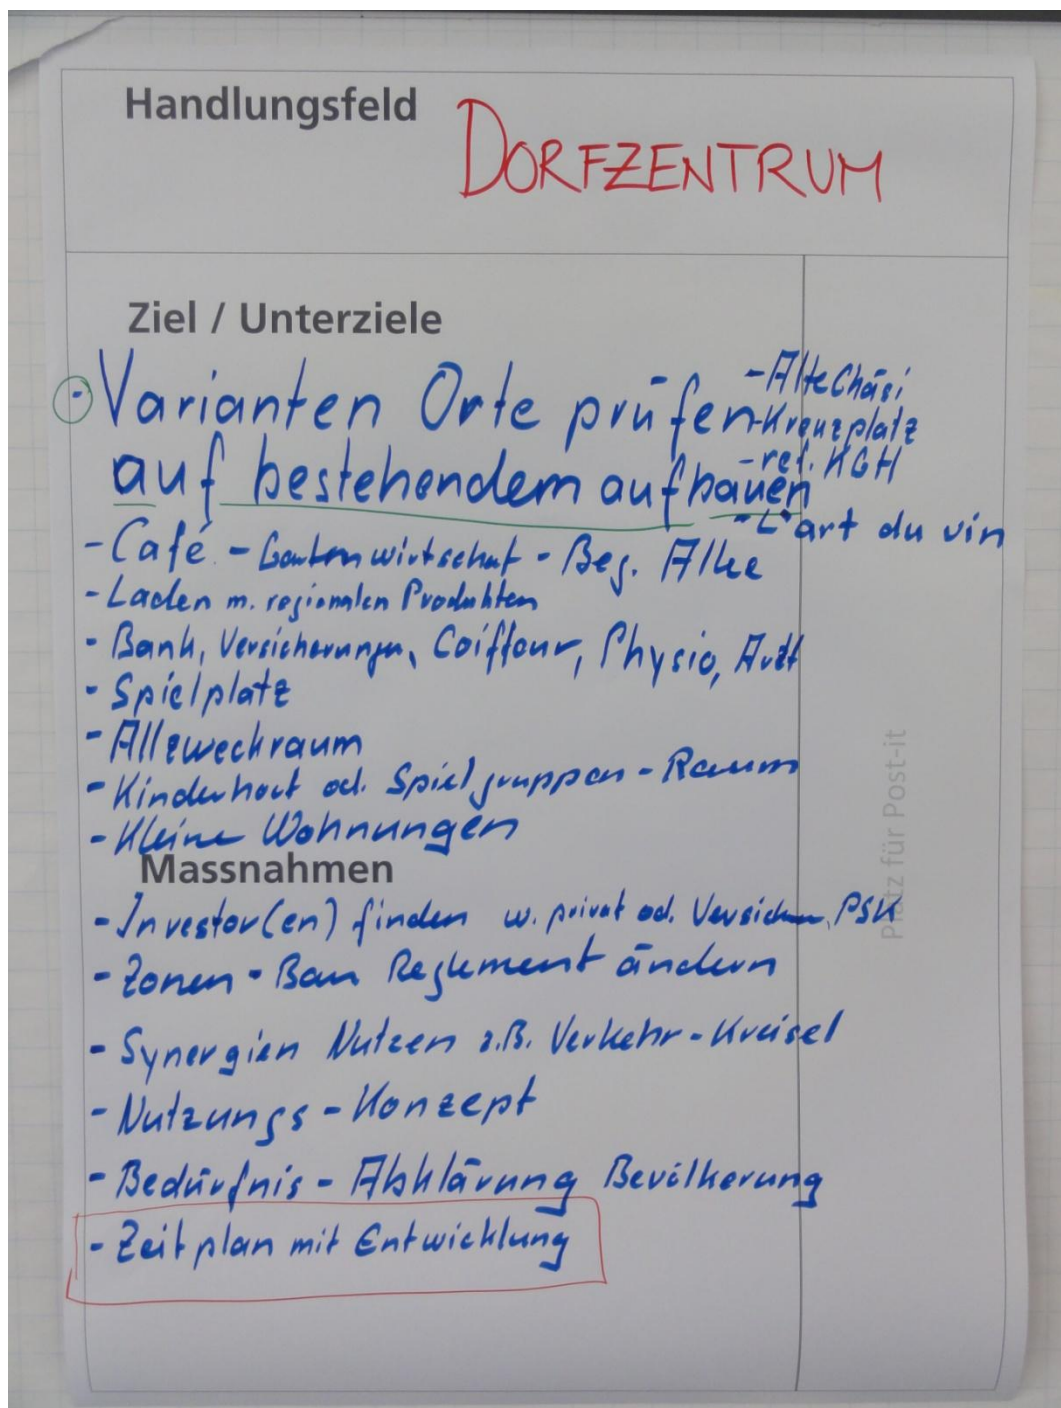 Handlungsfeld
DORFZENTRUM
Ziel / Unterziele
- Varianten Orte prüfen
- Alte Chäsi
- Kreuzplatz
- ref. KGH
auf bestehendem aufbauen
- L'art du vin
- Café - Gartenwirtschaft - Beg.
- Laden m. regionalen Produkten
- Bank, Versicherungen, Coiffeur, Physio, Arzt
- Spielplatz
- Allzweckraum
- Kinderhort od. Spielgruppen - Raum
- Kleine Wohnungen
Massnahmen
- Investor(en) finden w. privat od. Versicher. PSK
- Zonen - Bau Reglement ändern
- Synergien Nutzen z.B. Verkehr - Kreisel
- Nutzungs - Konzept
- Bedürfnis - Abklärung Bevölkerung
- Zeitplan mit Entwicklung
Platz für Post-it